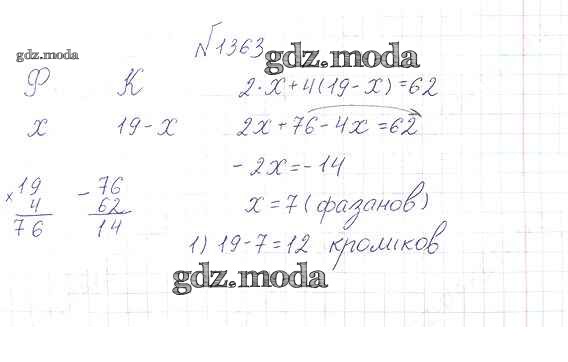 №1363
gdz.moda
gdz.moda
Ф К 2·x+4(19-x)=62
x 19-x 2x+76-4x=62
-2x=-14
×19 -76
4 62
76 14
x=7(фазанов)
1) 19-7=12 кроликов
gdz.moda